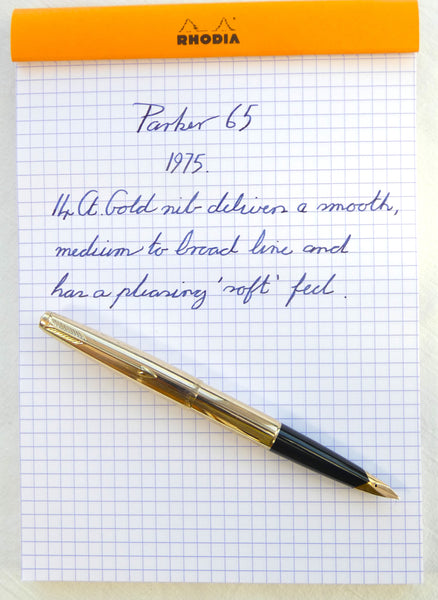 RHODIA
Parker 65
1975.
14 Ct. Gold nib delivers a smooth,
medium to broad line and
has a pleasing 'soft' feel.